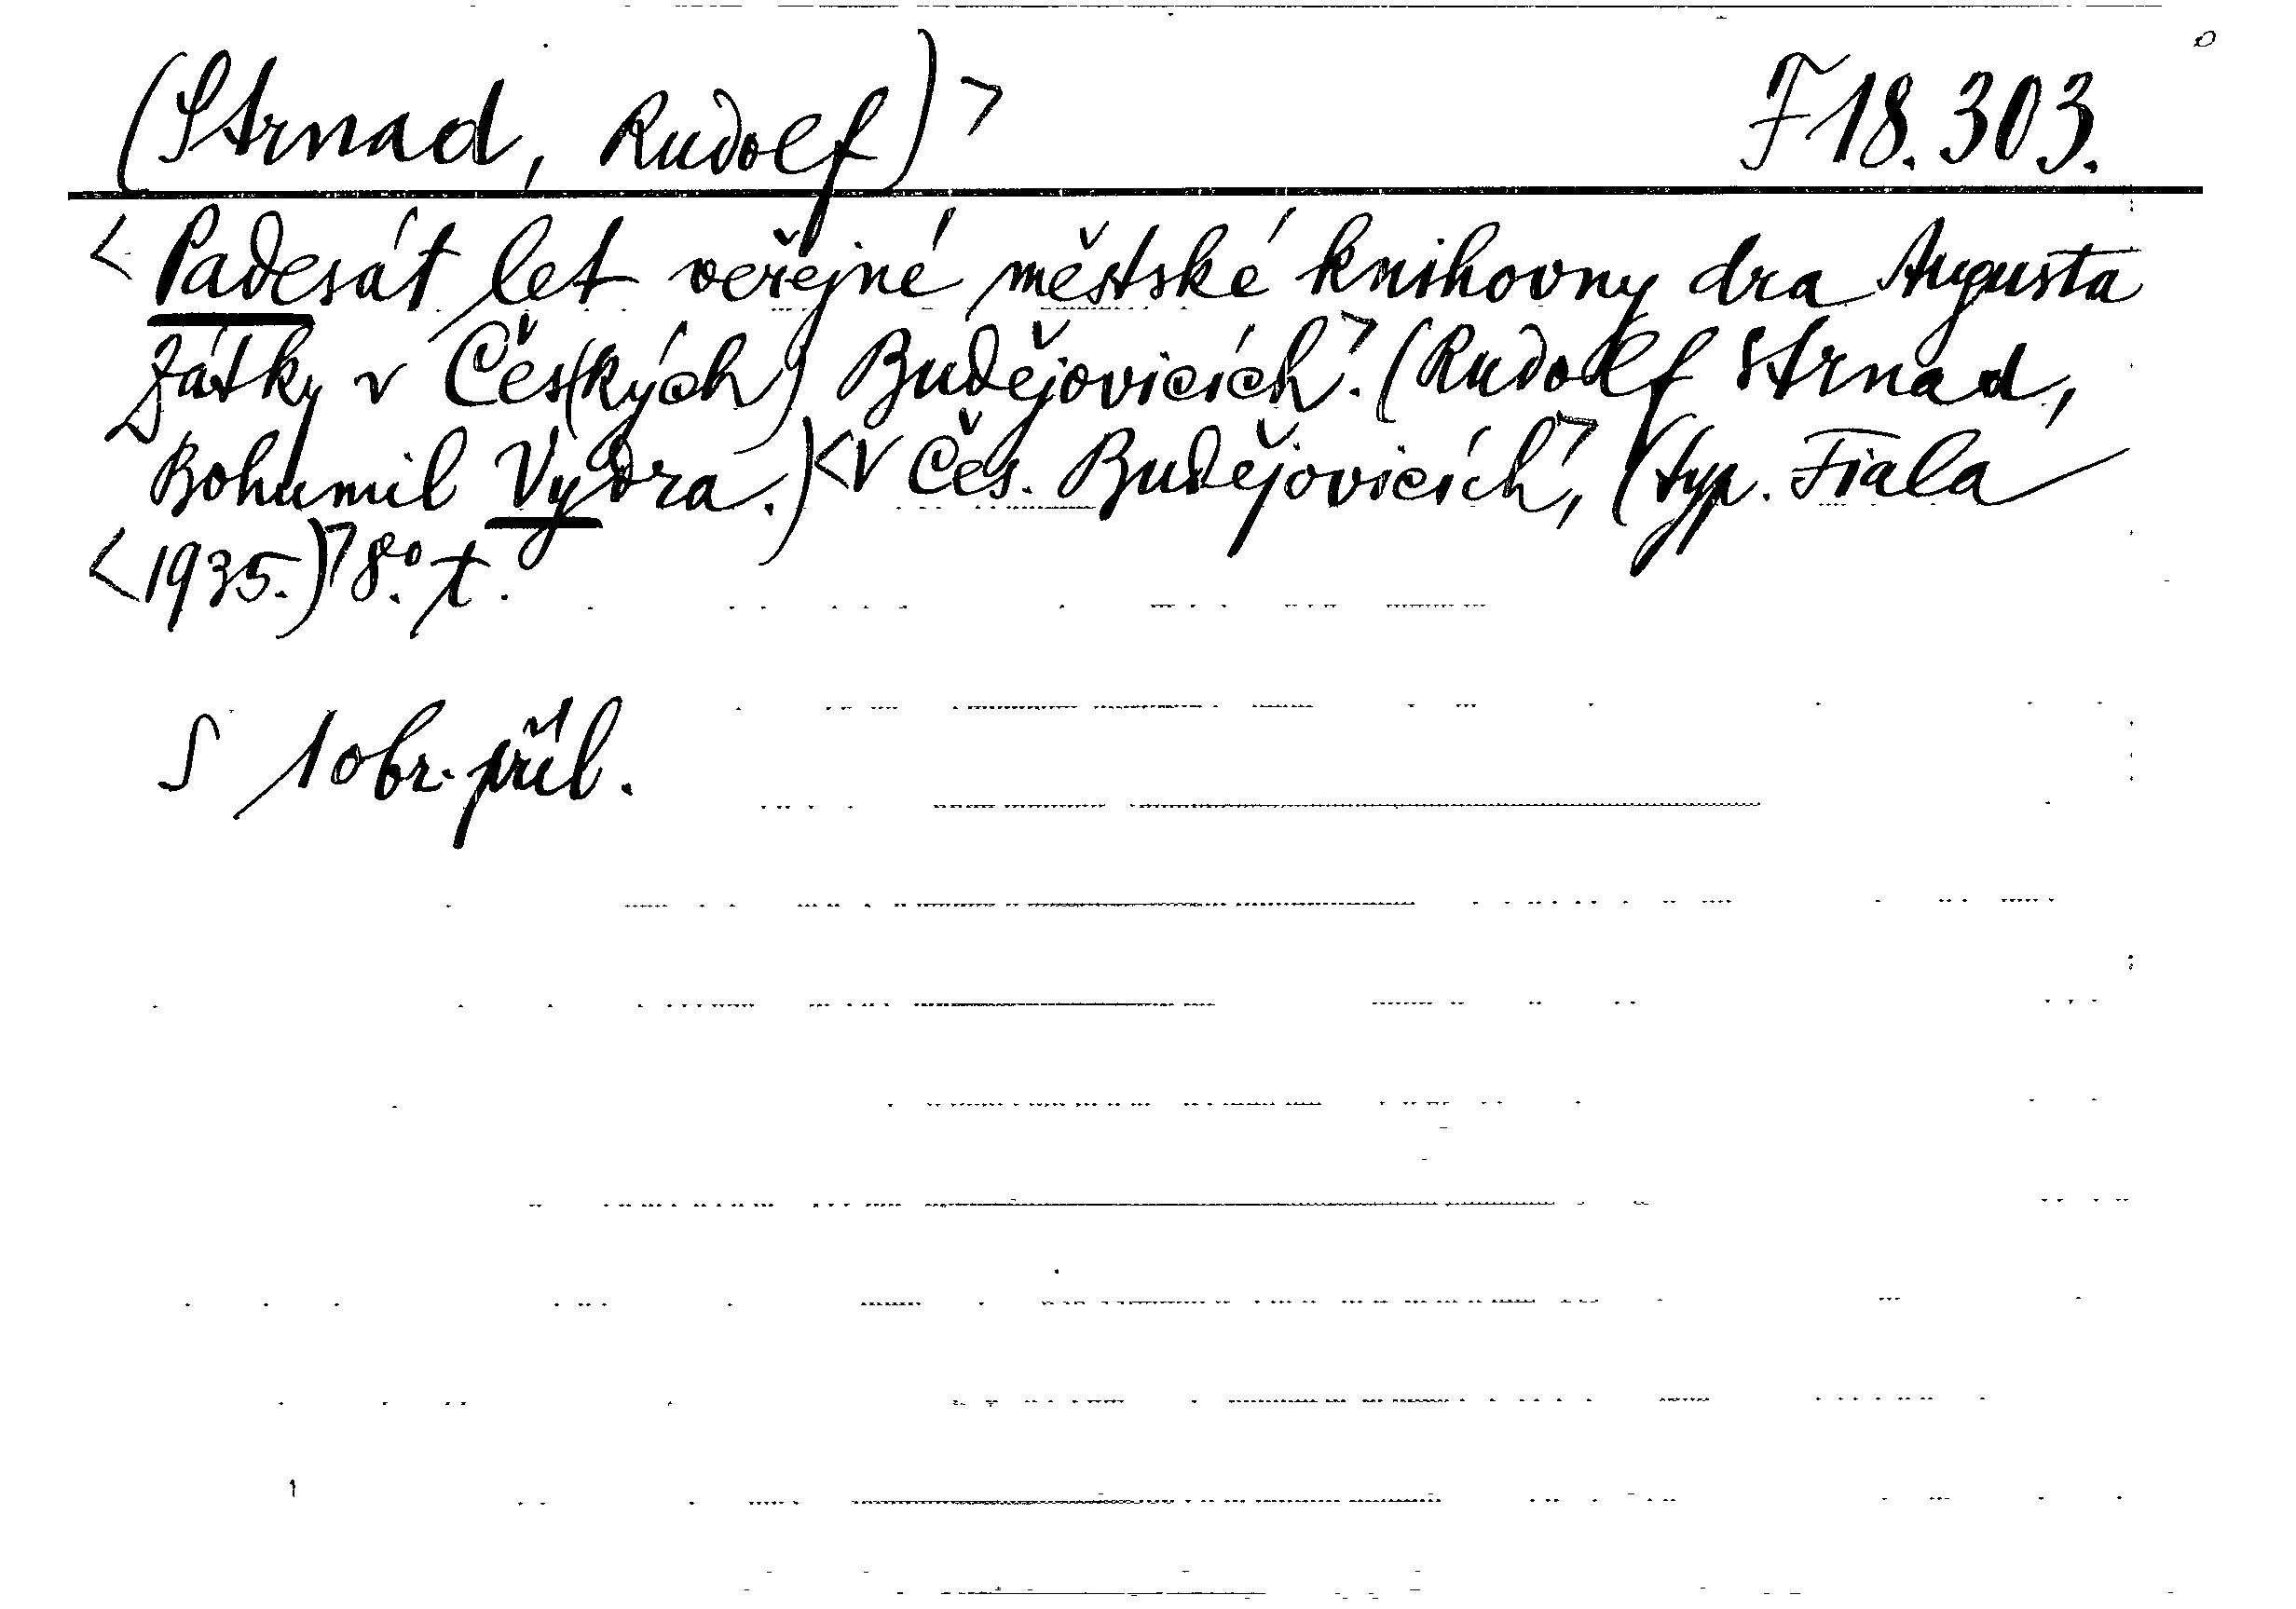 (Strnad, Rudolf)> F 18.303.
<Padesát let veřejné městské knihovny dra Augusta
Zátky v Čes(kých) Budějovicích.> (Rudolf Strnad,
Bohumil Vydra.) <V Čes. Budějovicích,> (typ. Fiala
<1935.)> 8°. t.
S 1 obr. příl.